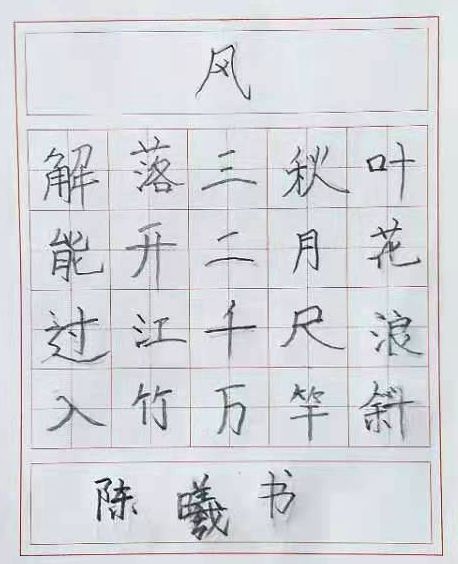 风
解落三秋叶
能开二月花
过江千尺浪
入竹万竿斜
陈曦书